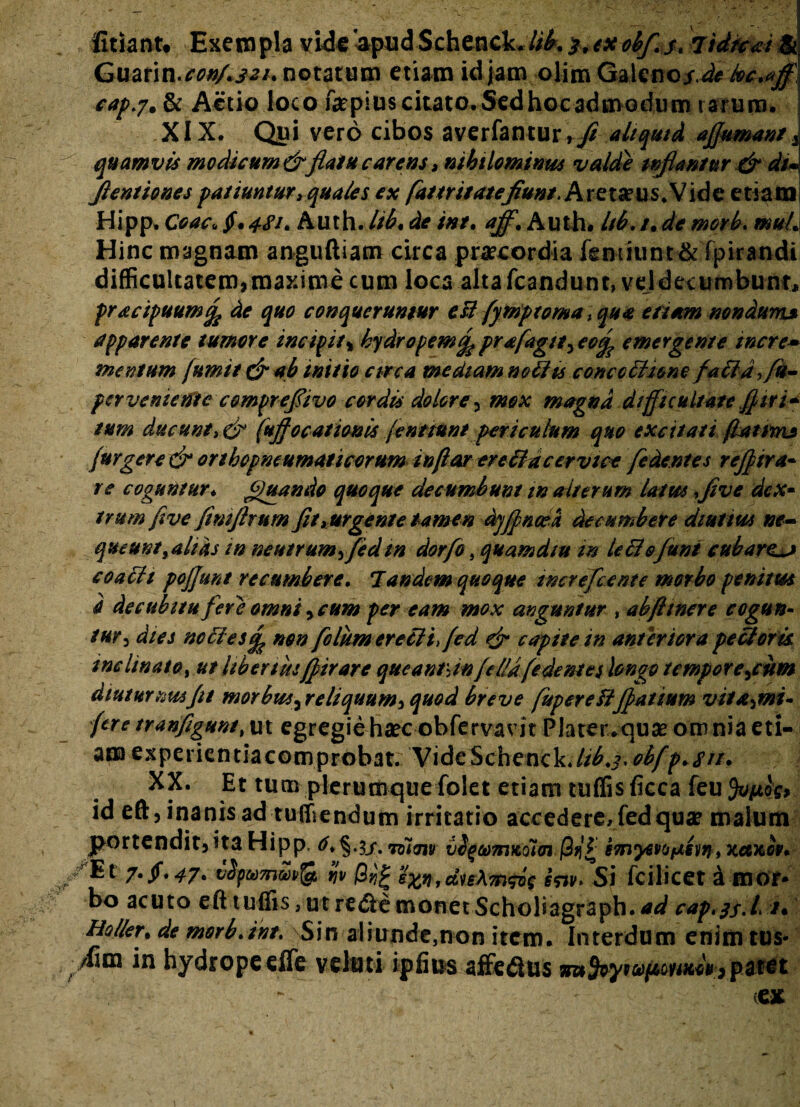 fitiant. Exempla vide apud Schenck. lib. 3. ex obs. s. Tidicæi &
Guarin. cons. 321. notatum etiam id jam olim Galeno s. de loc. aff.
cap. 7. & Aëtio loco sæpius citato. Sed hoc admodum rarum.
XIX. Qui verò cibos aversantur, si aliquid assumant,
quamvis modicum & flatu carens, nihilominus valdè inflantur & di-
stentiones patiuntur, quales ex satiritate fiunt. Aretæus. Vide etiam
Hipp. Coac. §. 481. Auth. lib. de int. aff. Auth. lib. 1. de morb. mul.
Hinc magnam angustiam circa præcordia sentiunt & spirandi
difficultatem, maximè cum loca alta scandunt, vel decumbunt,
præcipuumq; de quo conqueruntur est symptoma, quæ etiam nondum
apparente tumore incipit, hydropemq; præsagit, eoq; emergente incre-
mentum sumit & ab initio circa mediam noctis concoctione factâ, su-
perveniente compressivo cordis dolore, mox magnâ difficultate spiri-
tum ducunt, & suffocationis sentiunt periculum quo excitati statim
surgere & orthopneumaticorum instar erectâ cervice sedentes respira-
re coguntur. Quando quoque decumbunt in alterum latus, sive dex-
trum sive sinistrum sit, urgente tamen dyspnœâ decumbere diutius ne-
queunt, aliàs in neutrum, sed in dorso, quamdiu in lecto sunt cubare
coacti possunt recumbere. Tandem quoque increscente morbo penitus
à decubitu ferè omni, cum per eam mox anguntur, abstinere cogun-
tur, dies noctesq; non solùm erecti, sed & capite in anteriora pectoris
inclinato, ut liberiùs spirare queant; in sellâ sedentes longo tempore, cùm
diuturnus sit morbus, reliquum, quod breve superest spatium vitæ, mi-
serè transigunt, ut egregiè hæc observavit Plater. quæ omnia eti-
am experientia comprobat. Vide Schenck. lib. 3. obs p. 811.
XX. Et tum plerumque solet etiam tussis sicca seu
id est, inanis ad tussiendum irritatio accedere, sed quæ malum
portendit, ita Hipp. 6. §. 35.
Et 7. §. 47. Si scilicet à mor-
bo acuto est tussis, ut rectè monet Scholiagraph. ad cap. 35. l. 1.
Holler. de morb. int. Sin aliunde, non item. Interdum enim tus-
sim in hydrope esse veluti ipsius affectus patet
ex